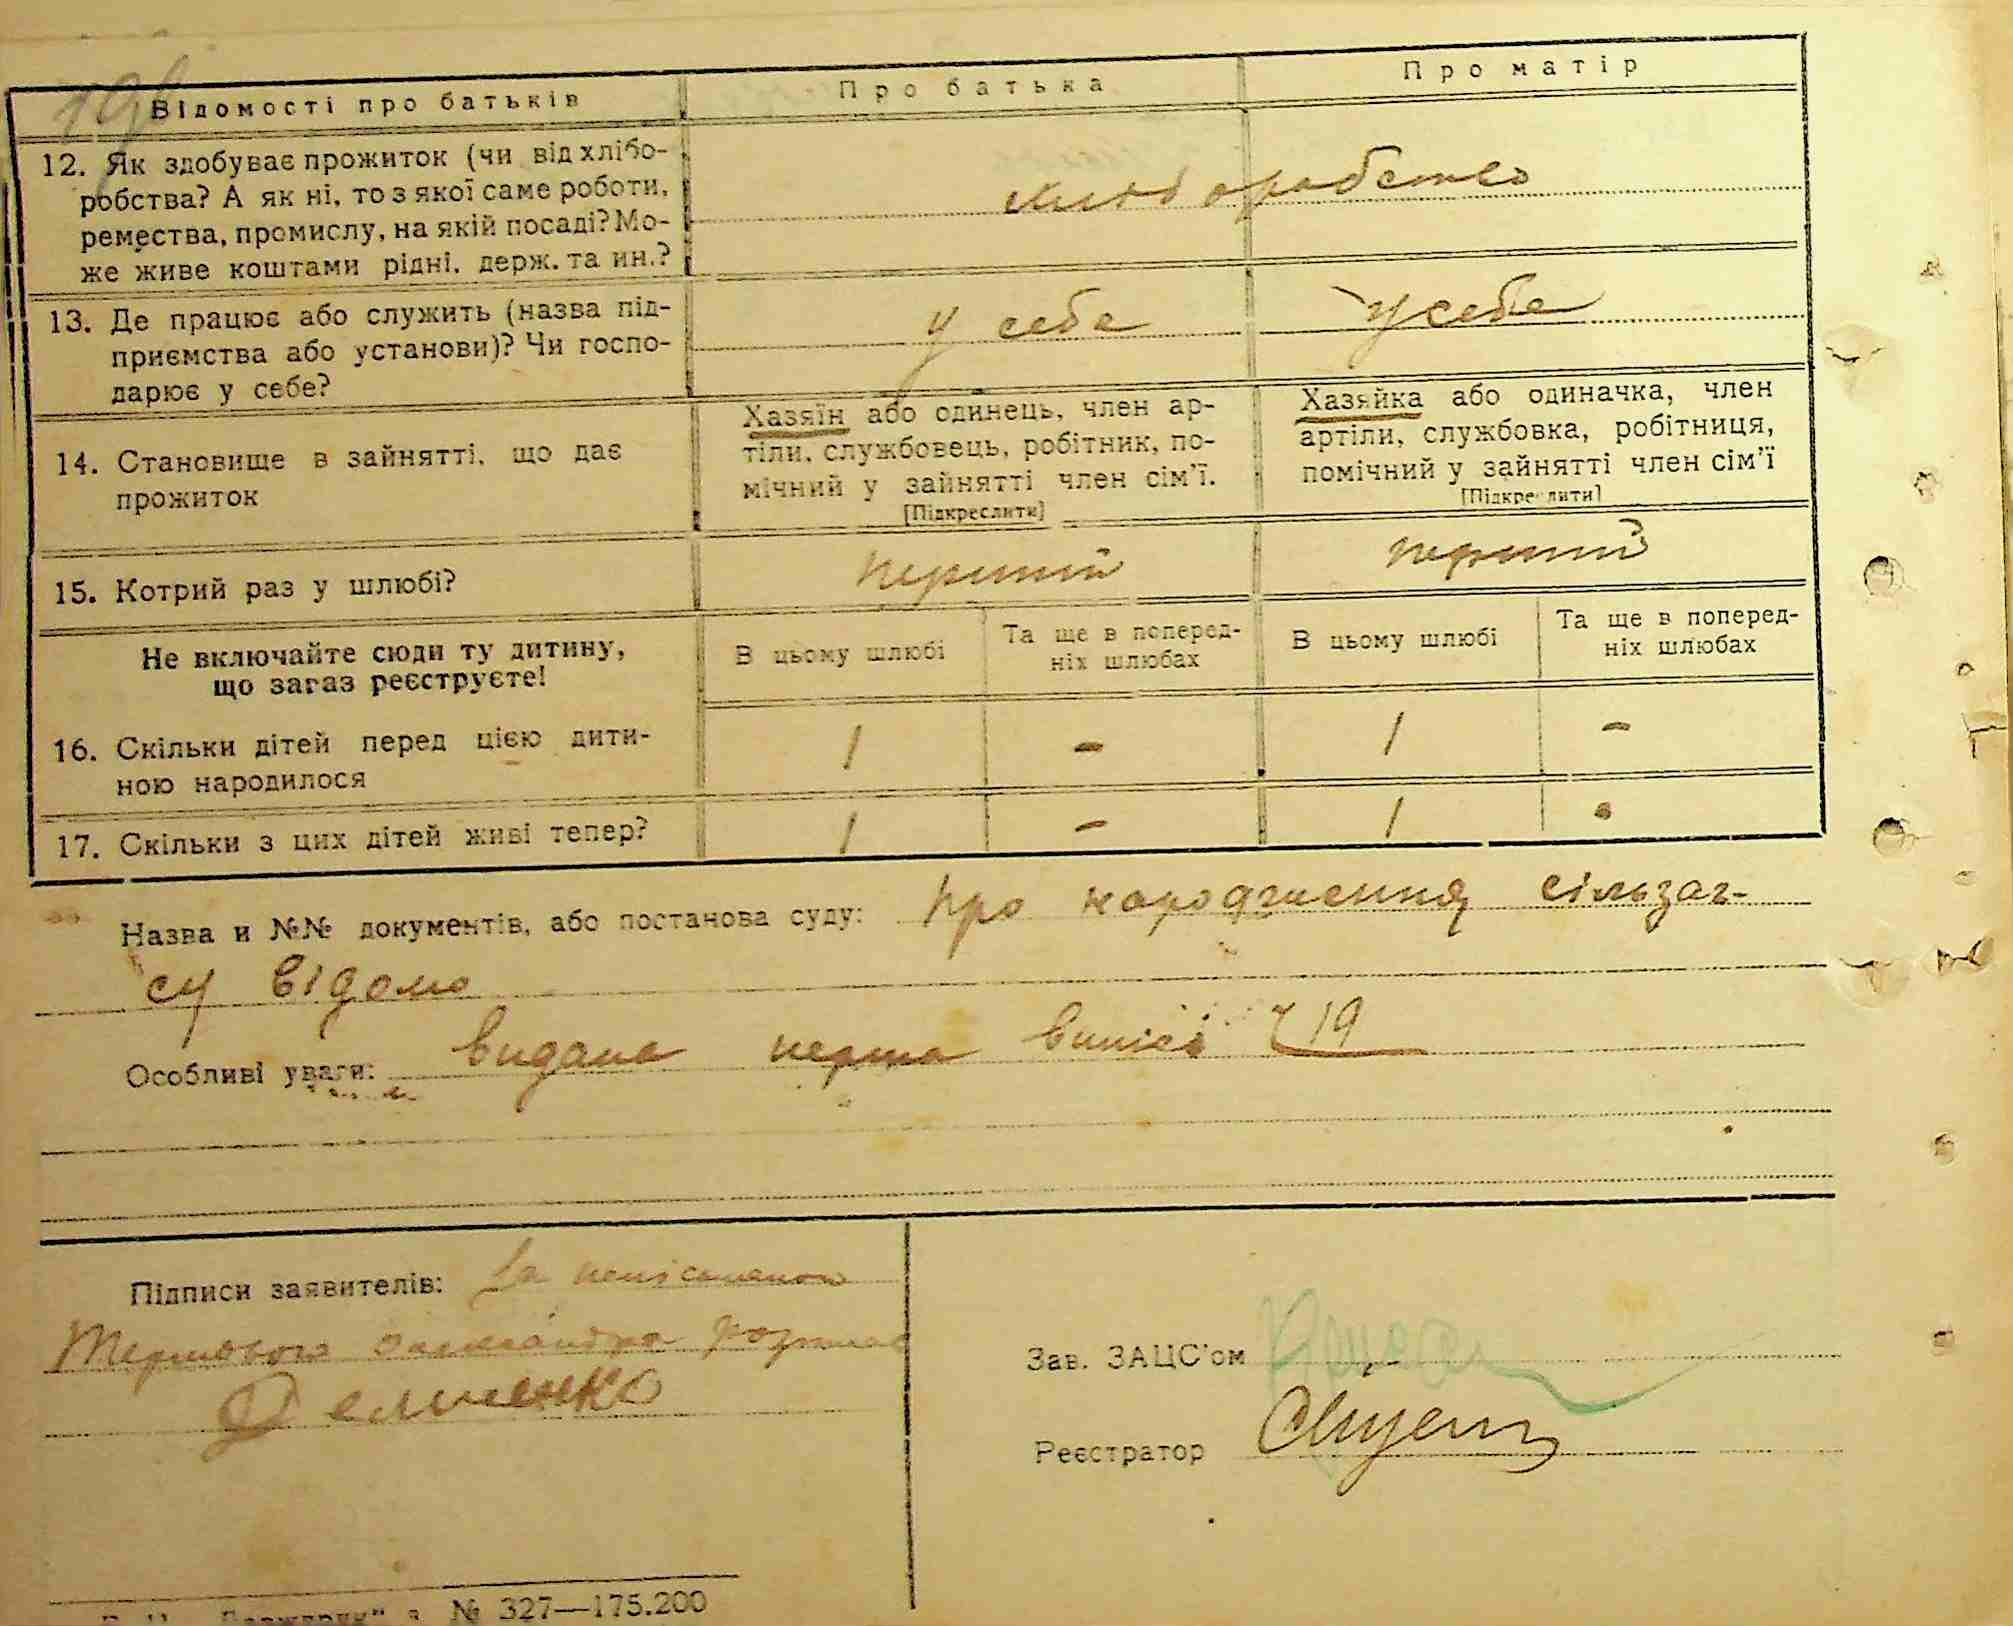 Відомості про батьків Про батька Про матір
12. Як здобуває прожиток (чи від хлібо-
робства? А як ні, то з якої саме роботи,
ремества, промислу, на якій посаді? Мо-
же живе коштами рідні, держ. та ин.?
хліборобство
13. Де працює або служить (назва під-
приємства або установи)? Чи госпо-
дарює у себе?
у себе у себе
14. Становище в зайнятті, що дає
прожиток
Хазяїн або одинець, член ар-
тіли, службовець, робітник, по-
мічний у зайнятті член сім'ї.
[Підкреслити]
Хазяйка або одиначка, член
артіли, службовка, робітниця,
помічний у зайнятті член сім'ї
[Підкреслити]
15. Котрий раз у шлюбі? перший перший
Не включайте сюди ту дитину,
що зараз реєструєте!
В цьому шлюбі
Та ще в поперед-
ніх шлюбах
В цьому шлюбі
Та ще в поперед-
ніх шлюбах
16. Скільки дітей перед цією дити-
ною народилося
1 - 1 -
17. Скільки з цих дітей живі тепер? 1 - 1 -
Назва и №№ документів, або постанова суду: про народження сільзаг-
су відомо
Особливі уваги: видана перша випись 19
Підписи заявителів: За неписьменого
Олександра
Демченко
Зав. ЗАЦС'ом
Реєстратор
№ 327—175.200